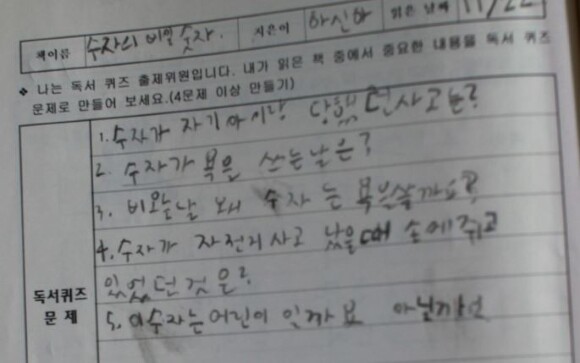 책이름 수자의 비밀 숫자. 지은이 하신하 읽은 날짜 11/22
❖ 나는 독서 퀴즈 출제위원입니다. 내가 읽은 책 중에서 중요한 내용을 독서 퀴즈
문제로 만들어 보세요.(4문제 이상 만들기)
1. 수자가 자기아시랑 당했던사고는?
2. 수자가 목을 쓰는날은?
3. 비오는날 왜 수자는
4. 수자가 자전거사고 났을때 손에쥐고
있었던것은?
독서퀴즈
문제
5. 이수자는어린이 인까요 아닐까요